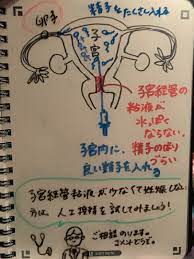 卵子
精子をたくさん入れる
子宮
子宮経管の
粘液が
水っぽく
ならない。
精子のぼり
づらい
子宮内に、
良い精子を入れる
子宮経管粘液が少なくて妊娠しない
方は、人工授精を試してみましょう!
ご相談のります。
コメントどうぞ。